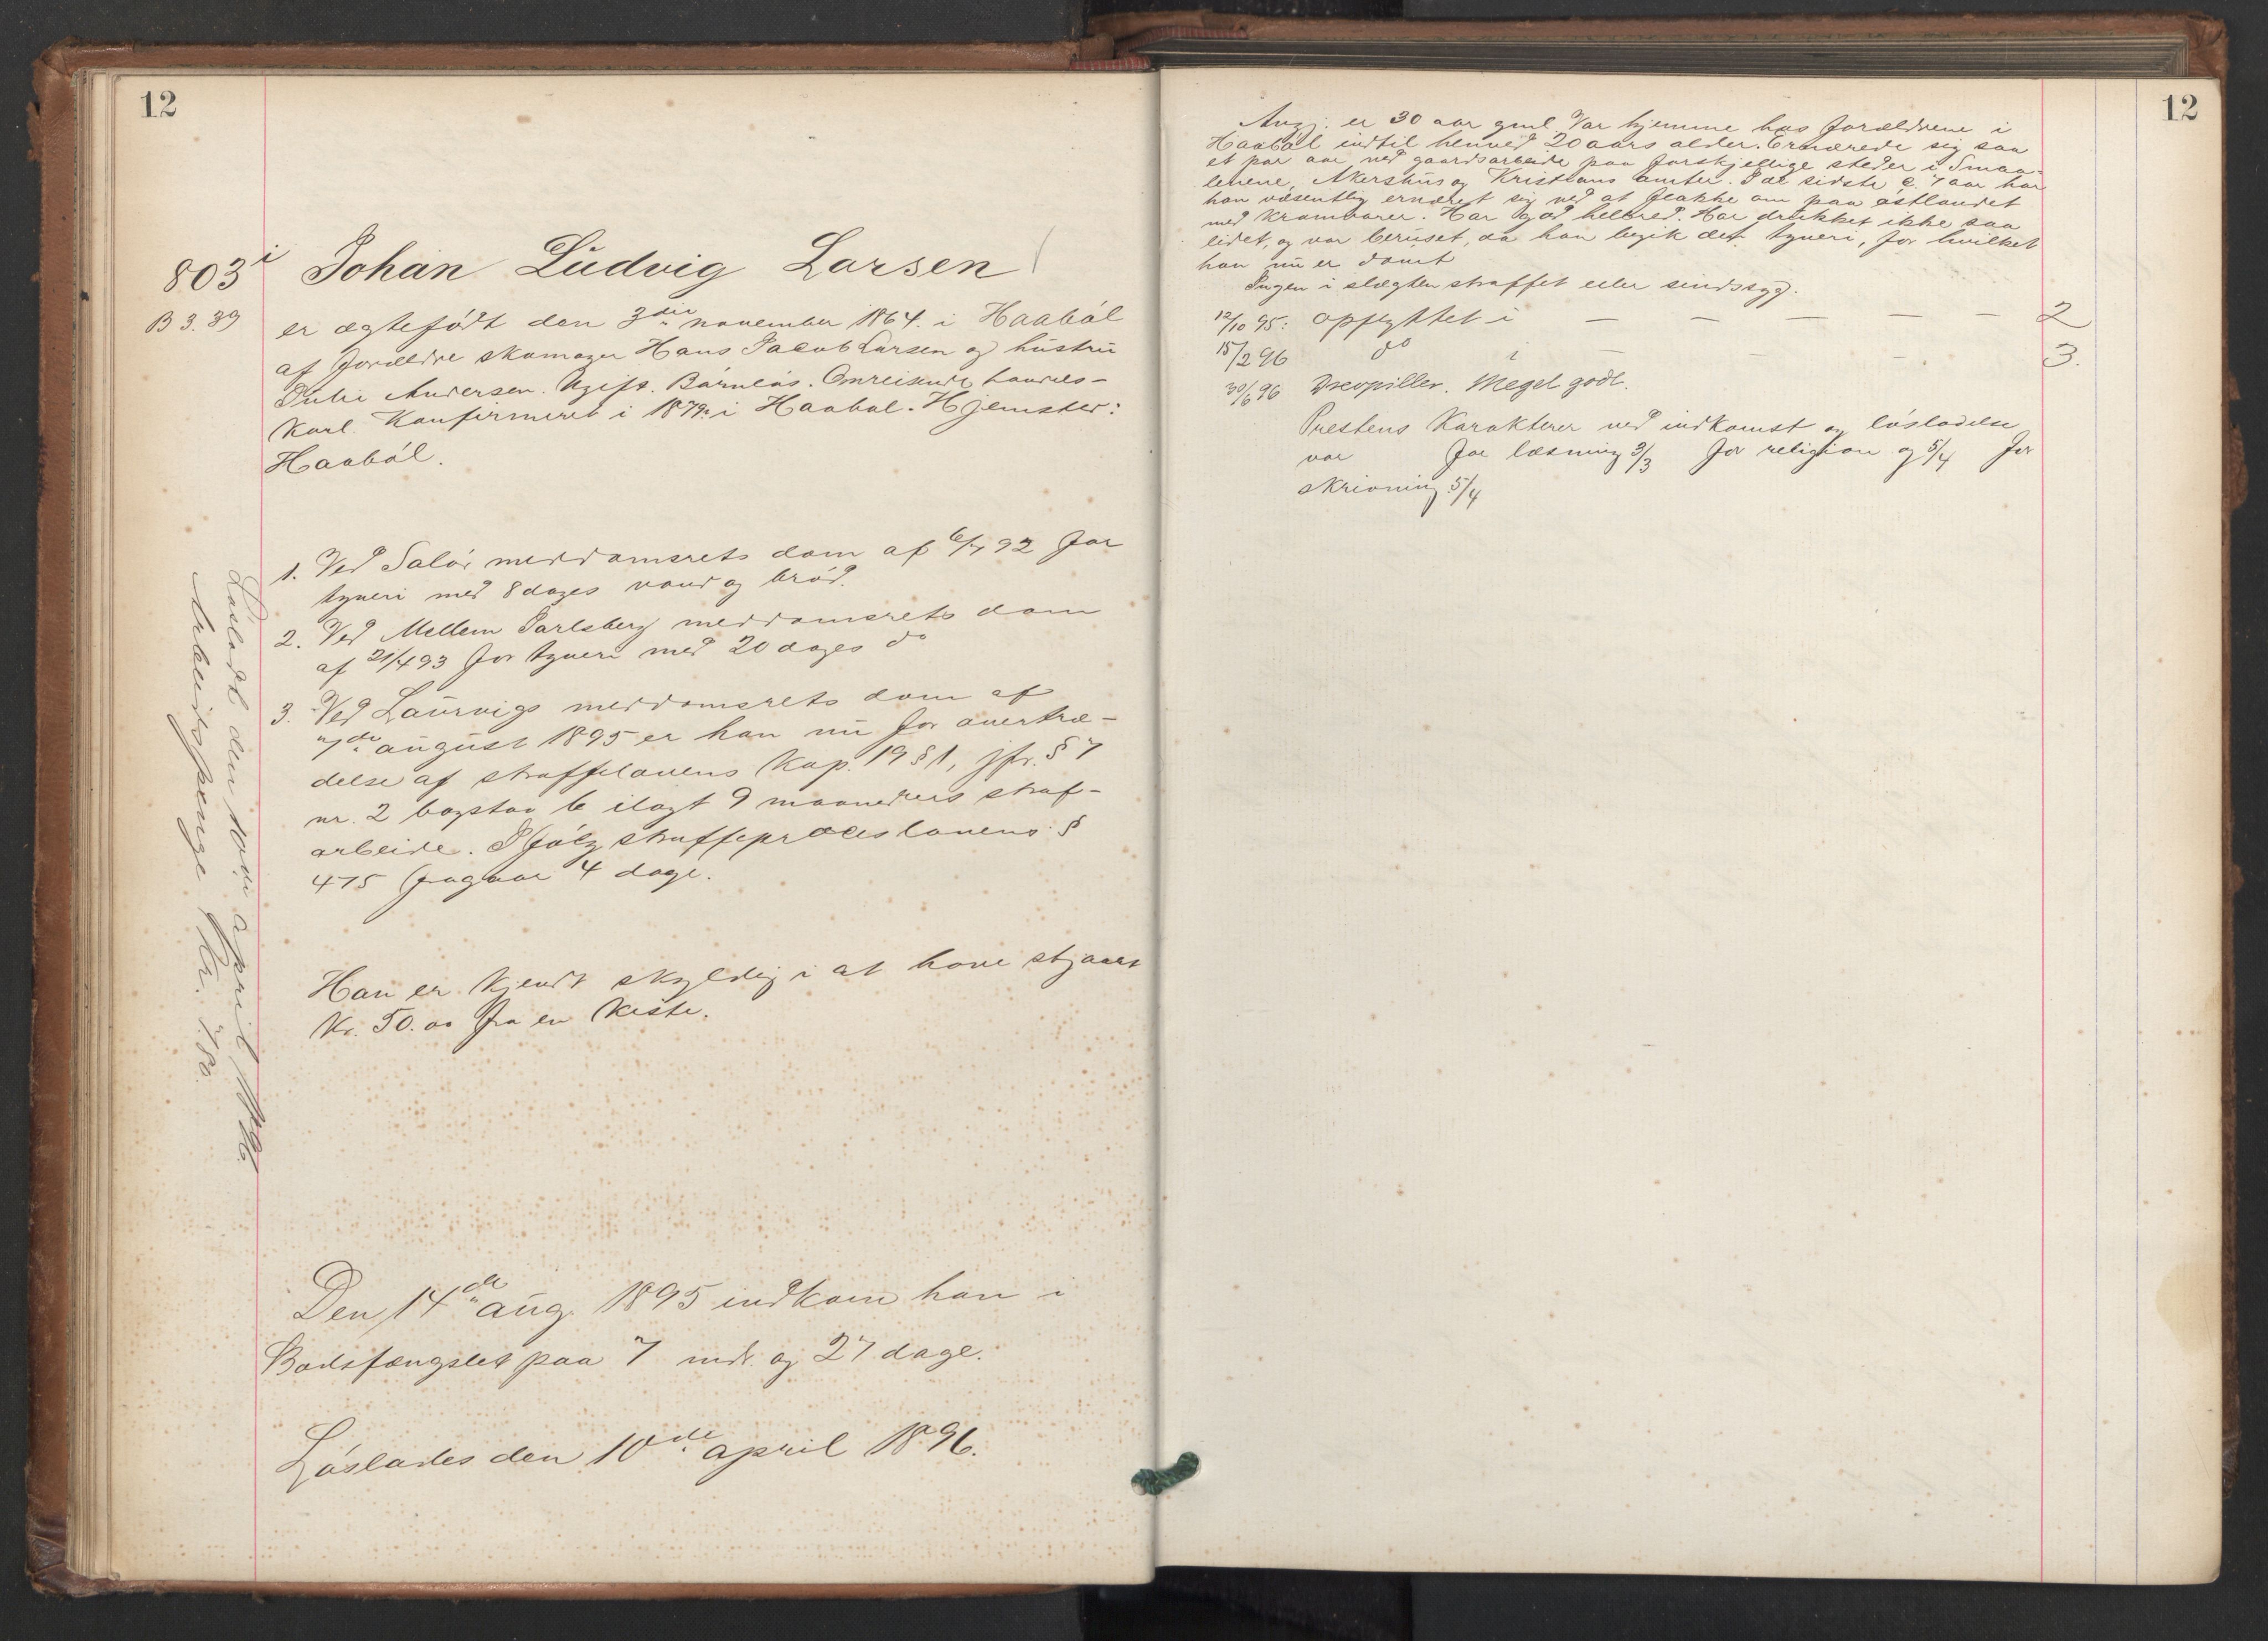 12
803 i
B 3. 39
Johan Ludvig Larsen
er ægtefødt den 3die november 1864 i Haabøl
af forældre skomager Hans Jacob Larsen og hustru
Julie Andersen. Ugift. Barnløs. Omreisende handels-
karl. Konfirmeret i 1879 i Haabøl. Hjemsted:
Haabøl.
1. Ved Solør meddomsrets dom af 6/7 92 for
tyveri med 8 dages vand og brød.
2. Ved Mellem Jarlsberg meddomsrets dom
af 21/4 93 for tyveri med 20 dages do
3. Ved Laurvigs meddomsrets dom af
7de august 1895 er han nu for overtræ-
delse af straffelovens Kap. 19 § 1, jfr. § 7
nr. 2 bogstav b ilagt 9 maaneders straf-
arbeide. Ifølg straffeproceslovens §
475 fragaar 4 dage.
Han er kjendt skyldig i at have stjaalet
Kr. 50.00 fra en kiste.
Den 14de aug. 1895 indkom han i
Bodsfængslet paa 7 mdr. og 27 dage.
Løslades den 10de april 1896.
Løsladt den 10de april 1896
Arbeidspenge Kr. 7.80.
12
Angj. er 30 aar gml. Var hjemme hos forældrene i
Haabøl indtil henved 20 aars alder. Ernærede sig saa
et par aar ved gaardsarbeide paa forskjellige steder i Smaa-
lenene, Akershus og Kristians amter. I de sidste c. 7 aar har
han væsentlig ernæret sig ved at flakke om paa østlandet
med kramvarer. Har god helbred. Har drukket ikke saa
lidet, og var beruset, da han begik det tyveri, for hvilket
han nu er dømt
Ingen i slægten straffet eller sindssyg.
12/10 95: opflyttet i — — — — — 2
15/2 96 do i — — 3.
30/6 96 Meget godt.
Prestens Karakterer ved indkomst og løsladelse
var for læsning 3/3 for religion og 5/4 for
skrivning 5/4